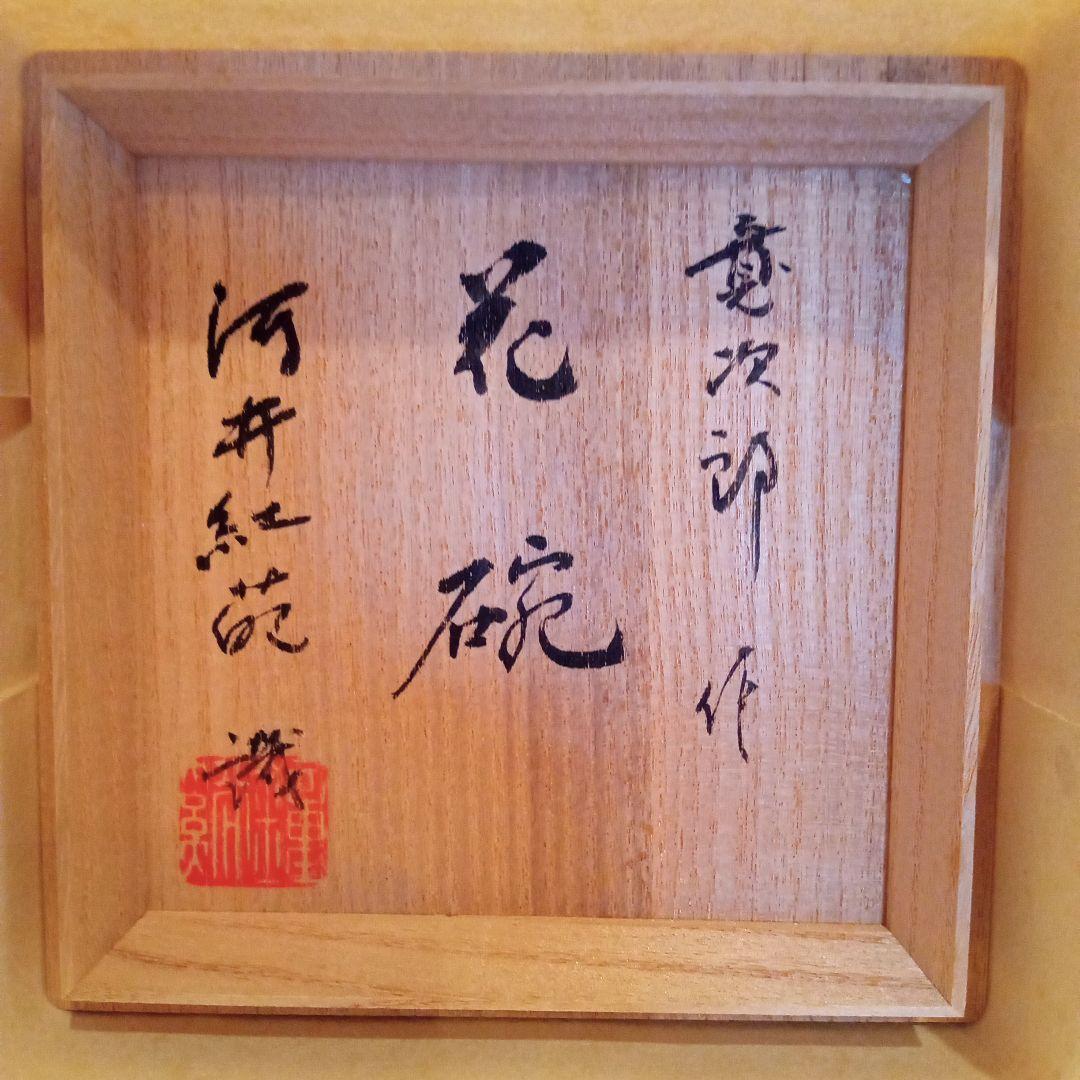 寛次郎 作
花碗
河井紅葩 識